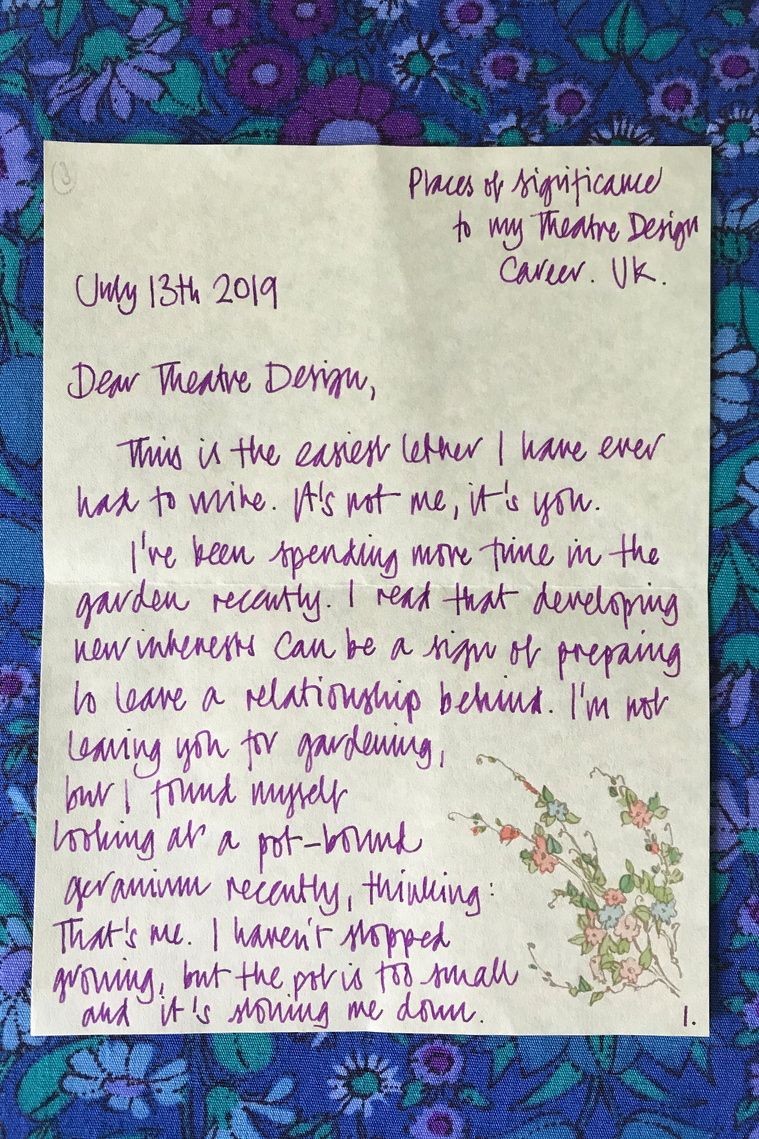 Places of significance
to my Theatre Design
Career. UK.
July 13th 2019
Dear Theatre Design,
This is the easiest letter I have ever
had to write. It's not me, it's you.
I've been spending more time in the
garden recently. I read that developing
new interests can be a sign of prepaing
to leave a relationship behind. I'm not
leaving you for gardening,
but I found myself
looking at a pot-bound
geranium recently, thinking:
That's me. I haven't stopped
growing, but the pot is too small
and it's slowing me down.
1.